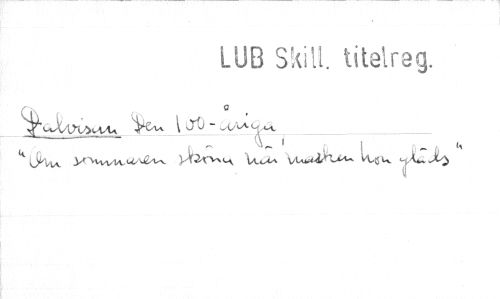 LUB Skill. titelreg.
Dalvisan Den 100-åriga
"Om sommaren sköna när marken hon gläds"